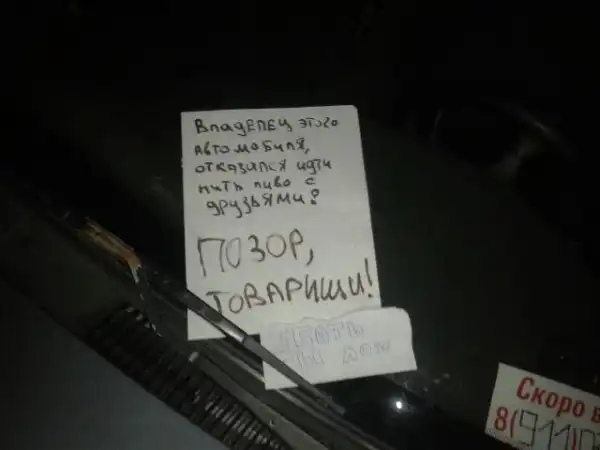 Владелец этого
автомобиля,
отказался идти
пить пиво с
друзьями?
ПОЗОР,
ТОВАРИЩИ!
Скоро
8(911)